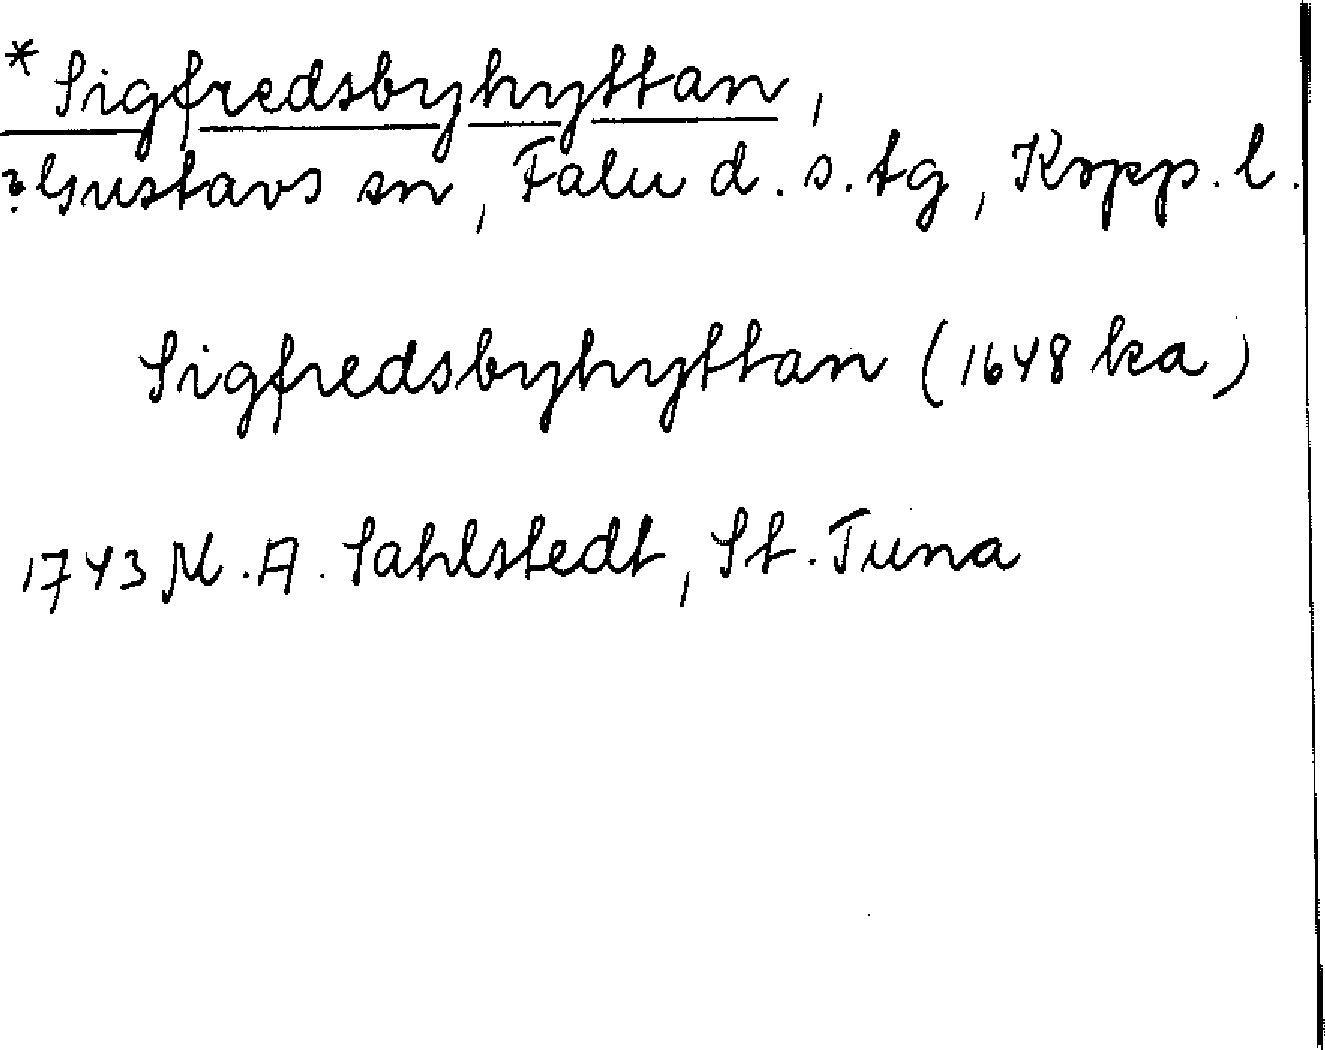 * Sigfredsbyhyttan,
? Gustavs sn, Falu d. s. tg, Kopp. l.
Sigfredsbyhyttan (1648 ka)
1743 M. A. Sahlstedt, St. Tuna